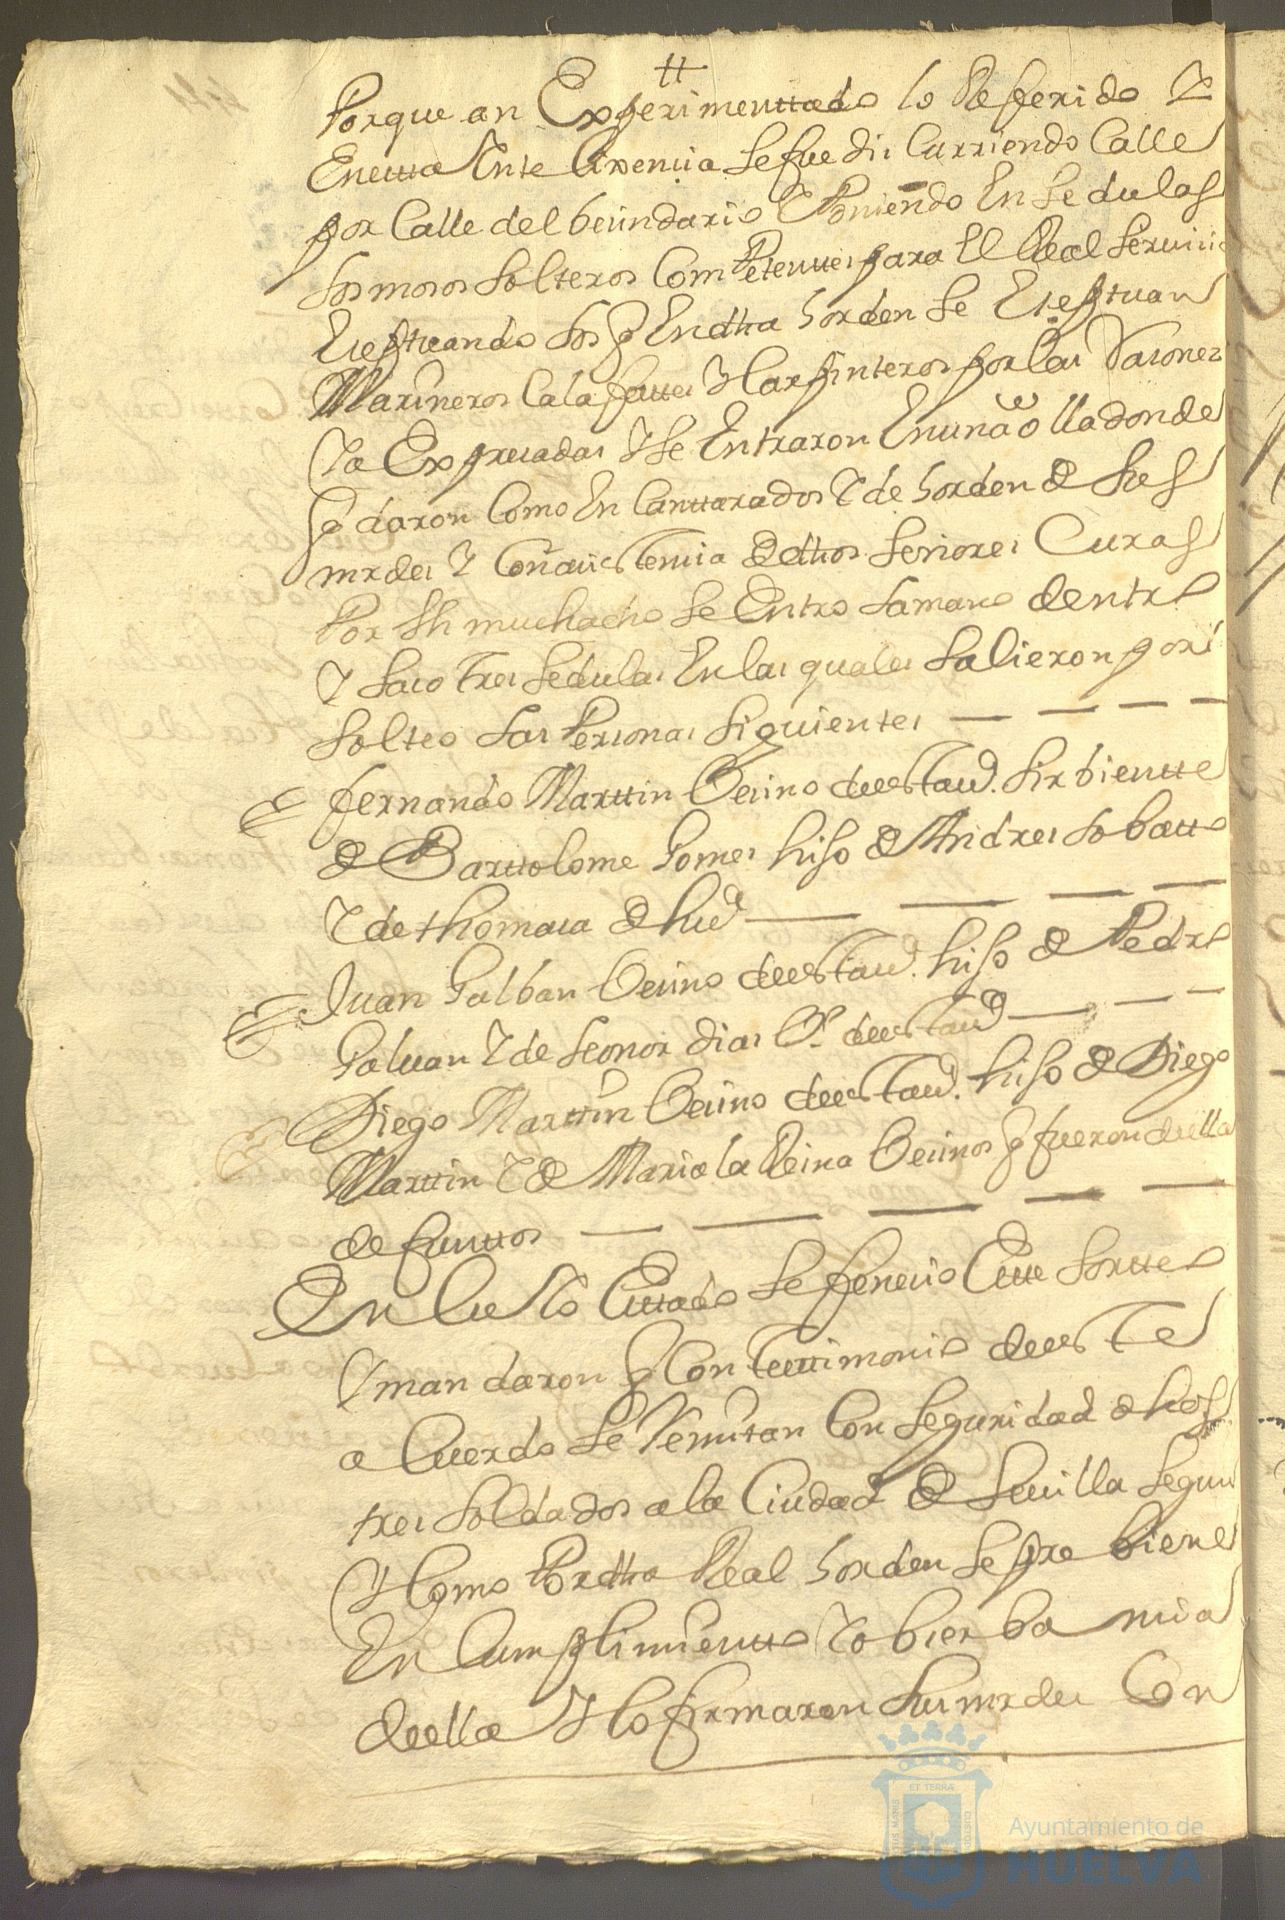 tt
Porque an Experimenttado lo Referido Y
En
por Calle del becindario Poniendo En sedulas
los mosos solteros Competentes para El Real servicio
los q En dha horden se
Marineros Calafattes Y Carpinteros por las Rasones
Ya Expresadas Y se Entraron En una olla donde
q daron Como En Canttarados Y de horden de sus
mrdes Y Con asistencia de dhos señores Curas
Por Un muchacho se Entro la mano dentro
Y saco tres sedulas En las quales salieron por
solteo las Personas siguientes
fernando Marttin Becino de esta ud. sirbientte
de Barttolome Gomes hijo de Andres lobatto
Y de thomasa de
Juan Galban Becino de esta ud. hijo de Pedro
Galuan Y de leonor dias de esta ud
Diego Marttin Becino de esta ud. hijo de Diego
Marttin Y de Maria la Reina Becinos q fueron de ella
defunttos
En Cuio Esttado se fenecio Este Sortteo
Y mandaron q Con testtimonio de este
a Cuerdo se Remitan Con seguridad dhos
tres soldados a la Ciudad de Seuilla segun
Y Como Por dha Real horden se pre biene
En Cumplimientto Y obserbancia
de ella Y lo firmaron sus mrdes Con
ET TERRÆ
Ayuntamiento de
HUELVA